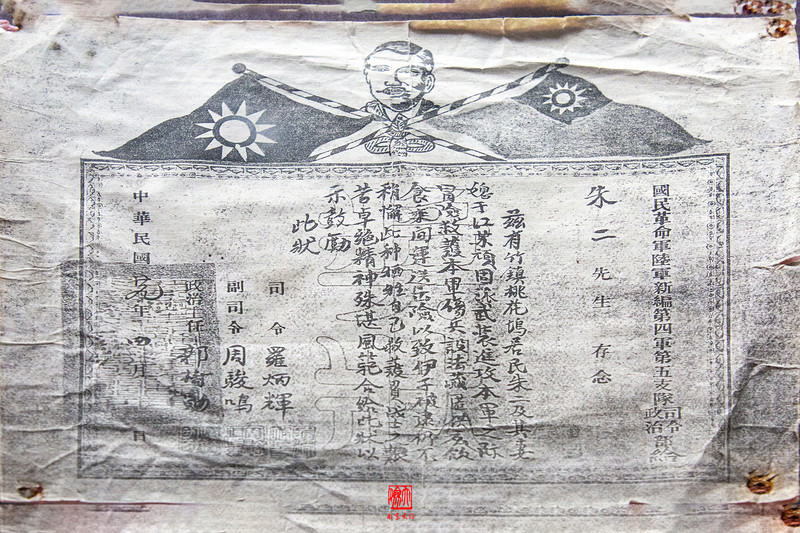 國民革命軍陸軍新編第四軍第五支隊司令政治部給
朱二先生 存念
茲有竹鎮桃花塢居民朱二及其妻
于江頑固派武裝進攻本軍之際
冒險救護本軍傷兵設法藏匿供飲
食以致伊子被逮仍不
稍懈此种牺牲自己救護戰士之艱
苦卓絕精神殊堪風範合給此狀以
示鼓勵
此狀
司令 羅炳輝
副司令 周駿鳴
政治主任
中華民國 年 四月 日